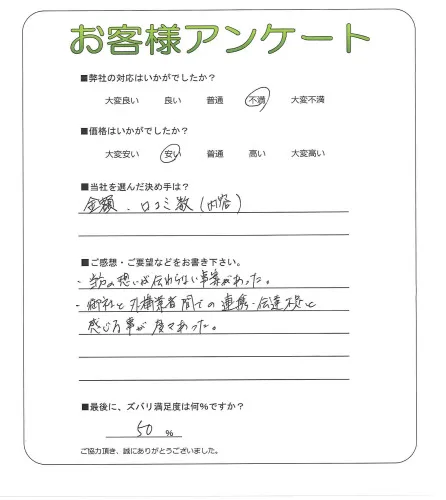 お客様アンケート
■弊社の対応はいかがでしたか？
大変良い 良い 普通 不満 大変不満
■価格はいかがでしたか？
大変安い 安い 普通 高い 大変高い
■当社を選んだ決め手は？
金額、口コミ数(内容)
■ご感想・ご要望などをお書き下さい。
・当方の想いが伝わらない事案があった。
・御社と外構業者間での連携・伝達不足と
感じる事が度々あった。
■最後に、ズバリ満足度は何%ですか？
50 %
ご協力頂き、誠にありがとうございました。